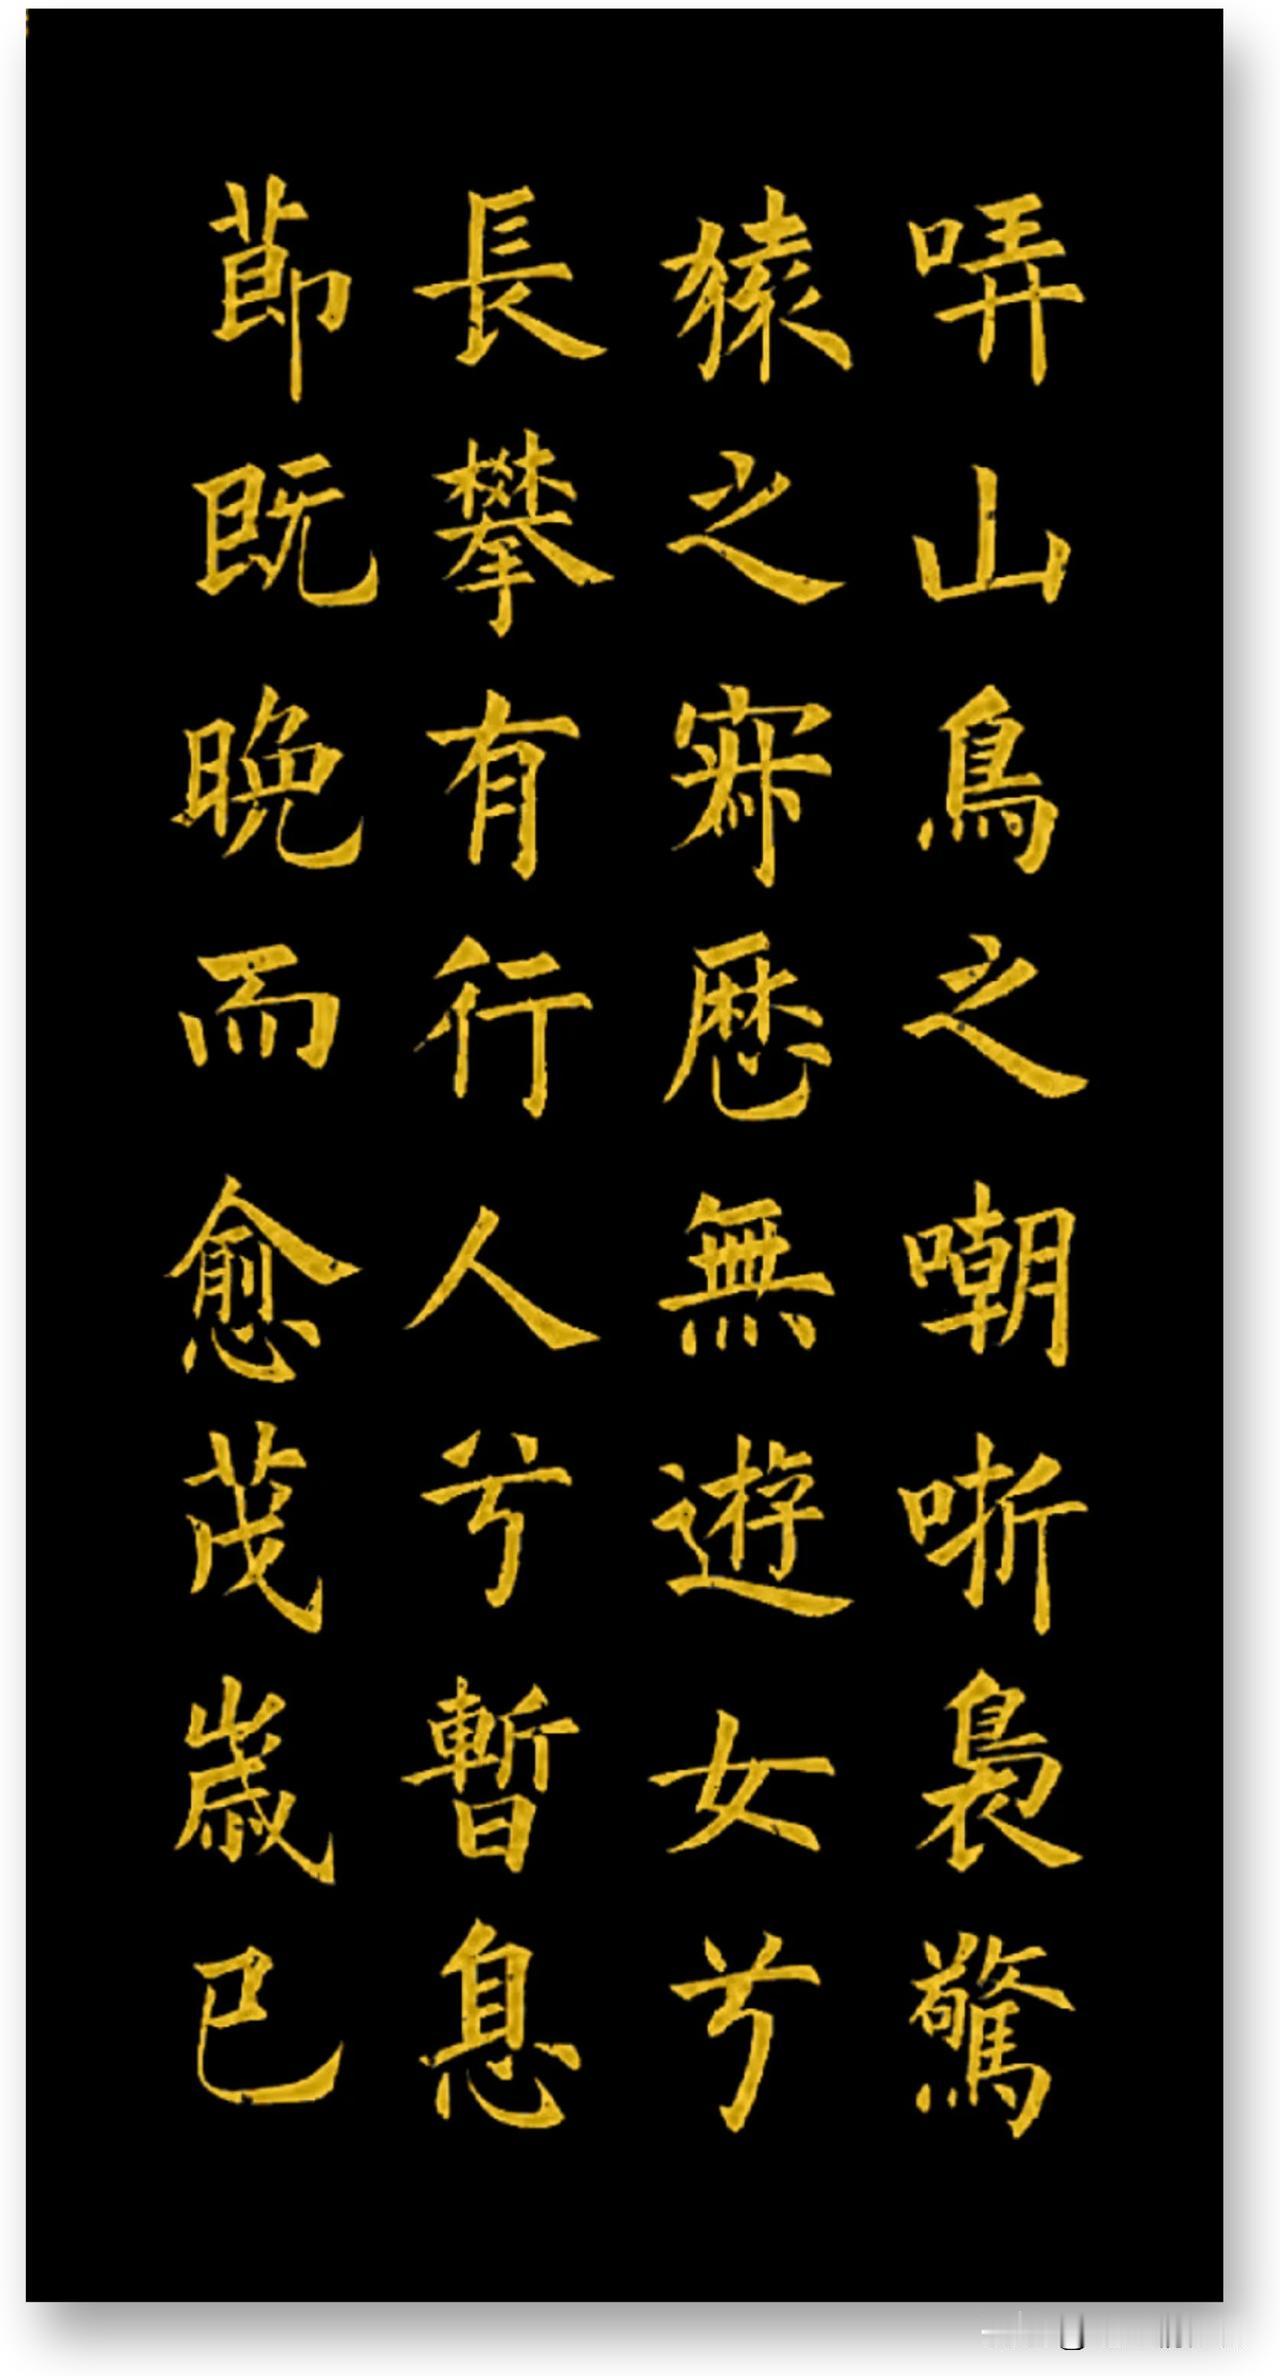 哢山鳥之嘲哳裊驚
猿之寂歷無遊女兮
長攀有行人兮暫息
節既晚而愈茂歲已